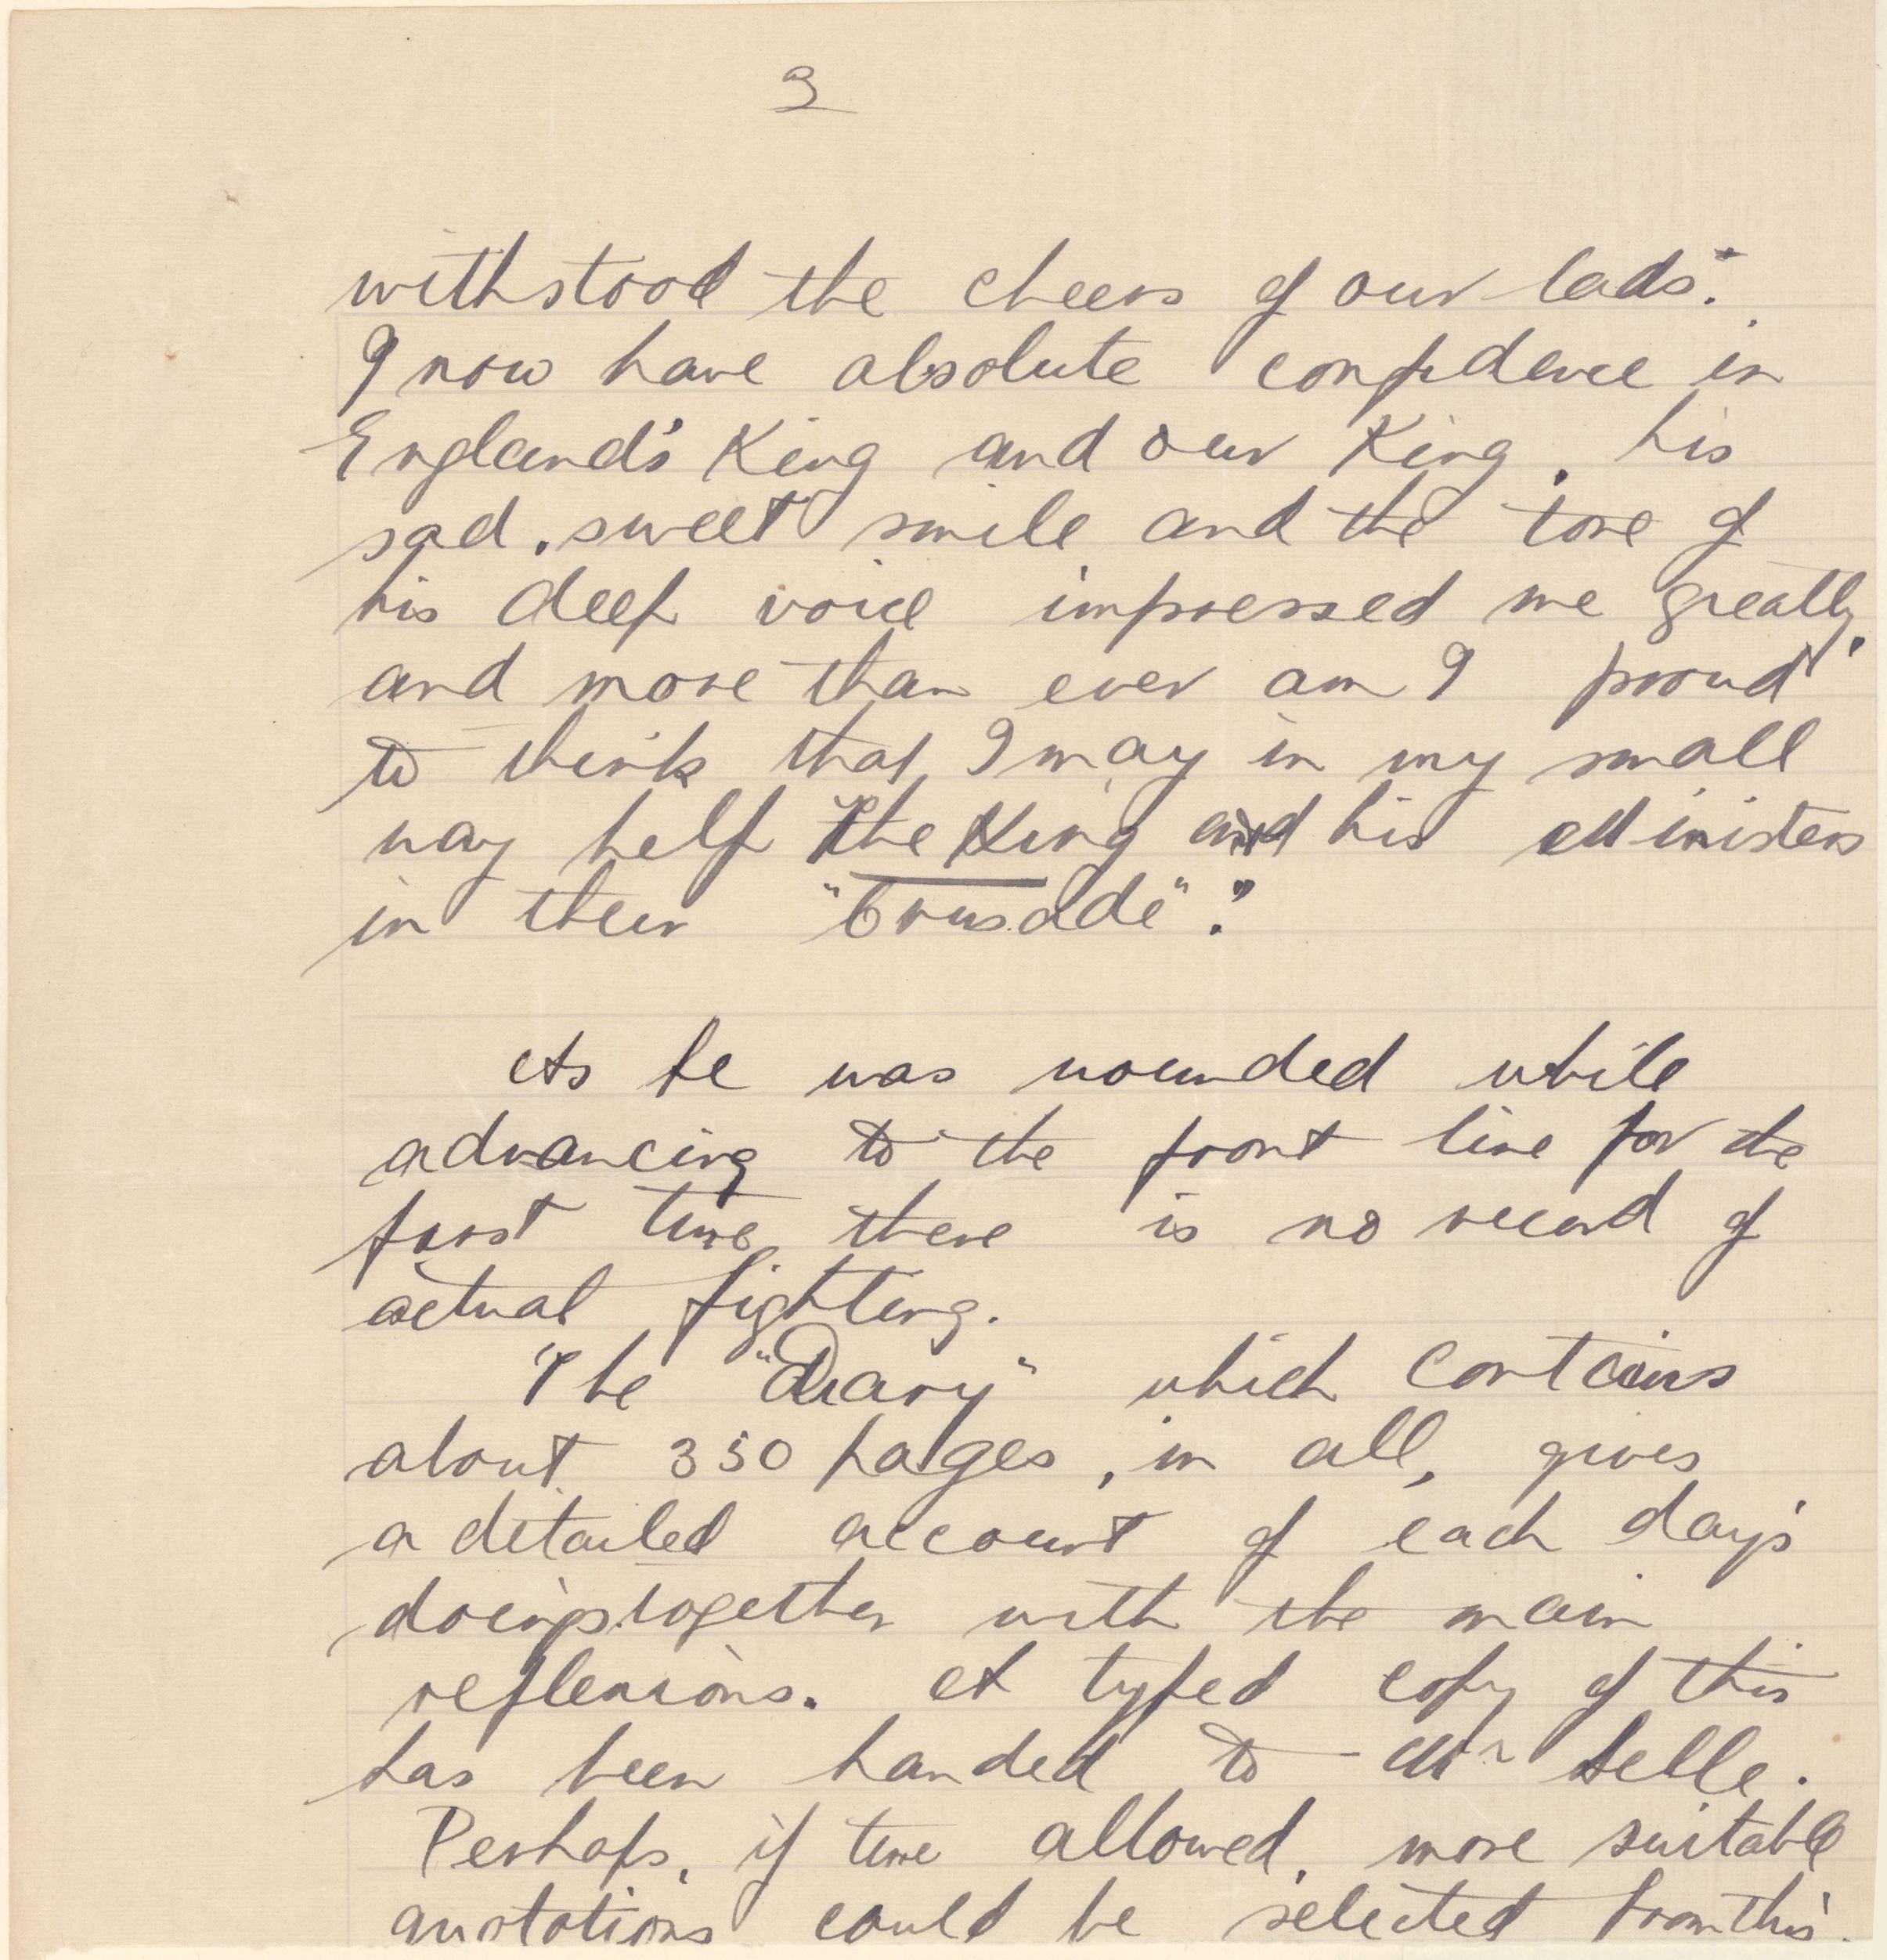 3
withstood the cheers of our lads".
I now have absolute confidence in
England's King and our King, his
sad, sweet smile and the tone of
his deep voice impressed me greatly,
and more than ever am I proud
to think that I may in my small
way help The King and his Ministers
in their "Crusade"."
As he was wounded while
advancing to the front line for the
first time, there is no record of
actual fighting.
The "Diary" which contains
about 350 pages, in all, gives
a detailed account of each day's
doings together with the main
reflexions. A typed copy of this
has been handed to Mr Selle.
Perhaps, if time allowed, more suitable
quotations could be selected from this.